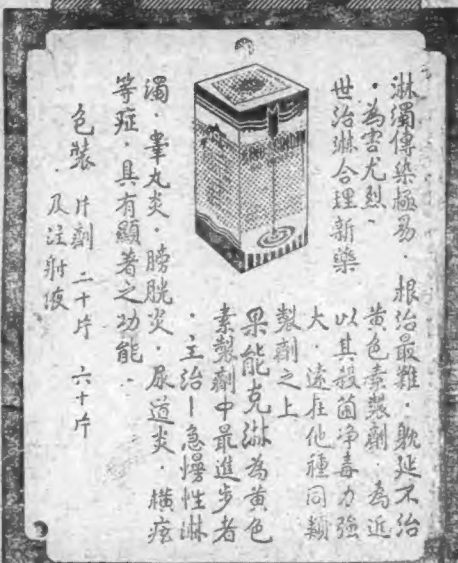 淋濁傳染極易．根治最難．躭延不治
．為害尤烈．黃色素製劑．為近
世治淋合理新藥以其殺菌淨毒力強
大．遠在他種同類
製劑之上
果能克淋為黃色
素製劑中最進步者
．主治－急慢性淋
濁．睾丸炎．膀胱炎．尿道炎．橫痃
等症．具有顯著之功能．
包裝 片劑 二十片 六十片
．及注射液